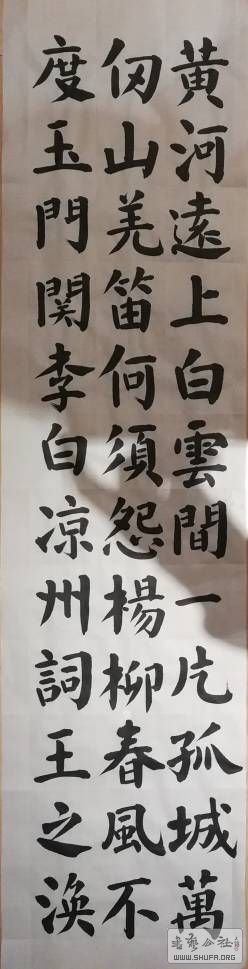 黄河遠上白雲間一片孤城萬
仞山羌笛何須怨楊柳春風不
度玉門関李白凉州詞王之渙
书艺公社
WWW.SHUFA.ORG